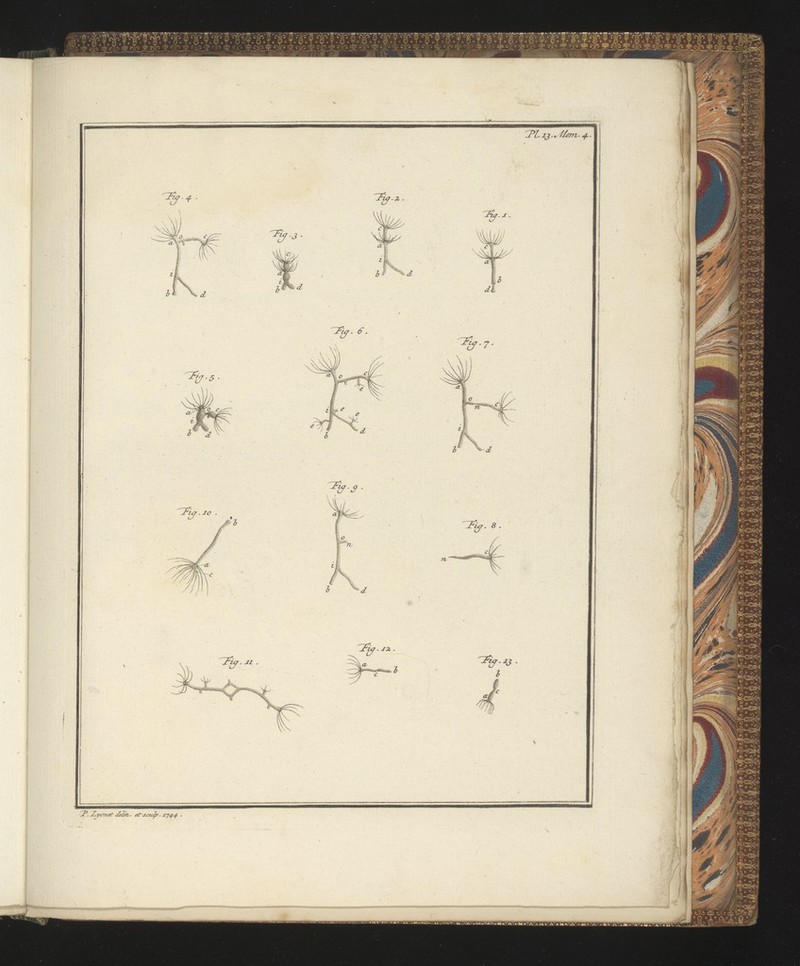 Pl. 13. Mem. 4.
Fig. 4.
a o c
i
b d
Fig. 3.
c
a
i
b d
Fig. 2.
c
a
i
b d
Fig. 1.
c
a
b
d
Fig. 5.
a c
i
b d
Fig. 6.
a o c
e
i e e
e
b d
Fig. 7.
a
o c
n
i
b d
Fig. 10.
b
a
c
Fig. 9.
a
o n
i
b d
Fig. 8.
c
n
Fig. 11.
Fig. 12.
a b
c
Fig. 13.
b
c
a
P. Lyonet delin. et sculp. 1744.